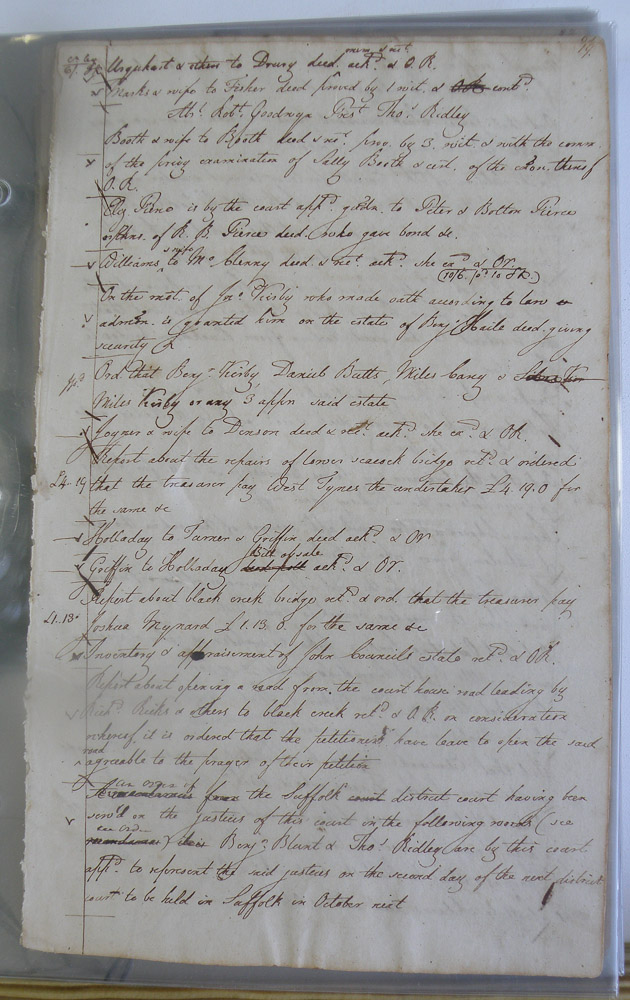 Urquhart & others to Drury deed ack.d & O R.
Marks & wife to Fisher deed proved by 1 wit. & O R cont.d
Rob.t Goodwyn Tho.s Ridley
Booth & wife to Booth deed & rec.t prov. by 3. wit. & with the comm.
of the privy examination of Sally Booth & cert. of the exon. thereof
O. R.
is by the court app.d gdn. to Peter & Bolton Pierce
orphns. of R. B. Pierce deed. who gave bond &c.
& wife
Williams to Mc Clenny deed & rect. ack.d she ex.d & Or
On the mot. of Jn.o Kirby who made oath according to law
admon. is granted him on the estate of Benj. Haile deed. giving
security
Ord. that Benj.n Kirby Daniel Butts, Miles Cary &
Miles Kirby or any 3 appr. said estate
Joyner & wife to Denson deed & ret. ack.d she ex.d & OR.
Report about the repairs of lower seacock bridge ret.d & ordered
£4.19 that the treasurer pay West Tynes the undertaker £4.19.0 for
the same &c
Holladay to Turner & Griffin deed ack.d & Or
Bill of sale
Griffin to Holladay deed poll ack.d & Or.
Report about black creek bridge ret.d & ord. that the treasurer pay
£1.13. Joshua Mynard £1.13.6 for the same &c
Inventory & appraisement of John Councils estate ret.d & O.R.
Report about opening a road from the court house road leading by
Rich.d Ricks & others to black creek ret.d & O. R. on consideration
whereof it is ordered that the petitioners have leave to open the said
road
agreeable to the prayer of their petition
an order of
from the Suffolk court district court having been
serv'd on the justices of this court in the following words (see
mandamus) this Benj.n Blunt & Tho.s Ridley are by this court
app.d to represent the said justices on the second day of the next district
court to be held in Suffolk in October next